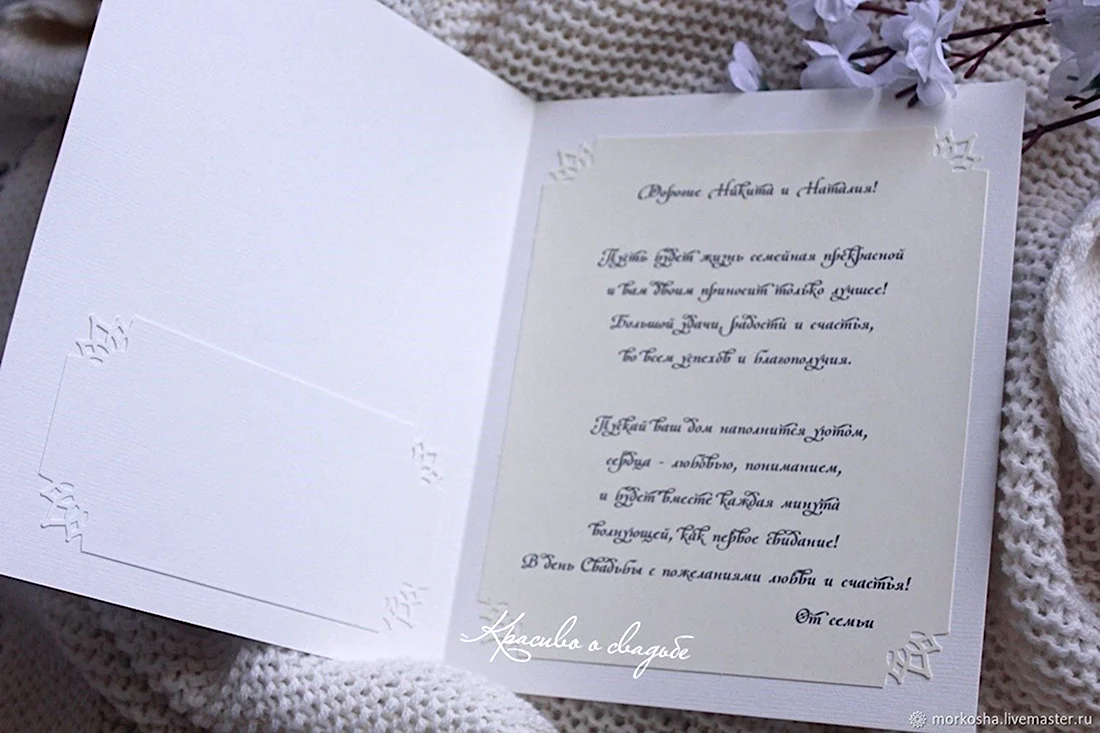 Дорогие Никита и Наталия!
Пусть будет жизнь семейная прекрасной
и вам двоим приносит только лучшее!
Большой удачи, радости и счастья,
во всем успехов и благополучия.
Пускай ваш дом наполнится уютом,
сердца - любовью, пониманием,
и будет вместе каждая минута
волнующей, как первое свидание!
В день Свадьбы с пожеланиями любви и счастья!
От семьи
Красиво о свадьбе
morkosha.livemaster.ru